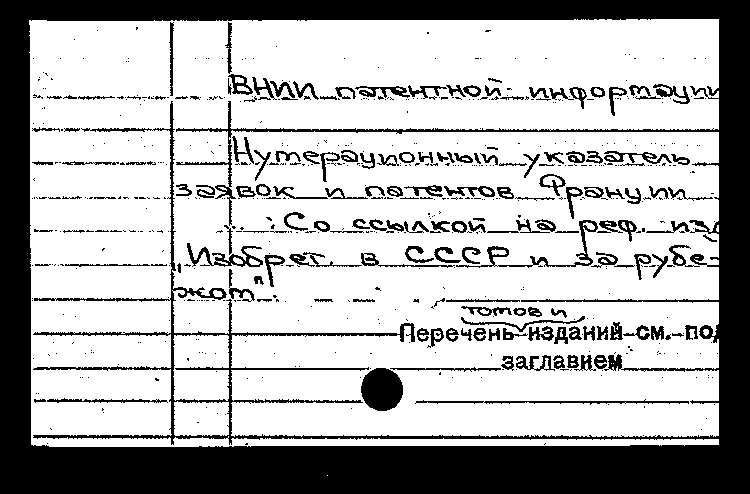 ВНИИ патентной информации
Нумерационный указатель
заявок и патентов Франции
... : Со ссылкой на реф. изд
„Изобрет. в СССР и за рубе-
жом".
томов и
Перечень изданий см. под
заглавием